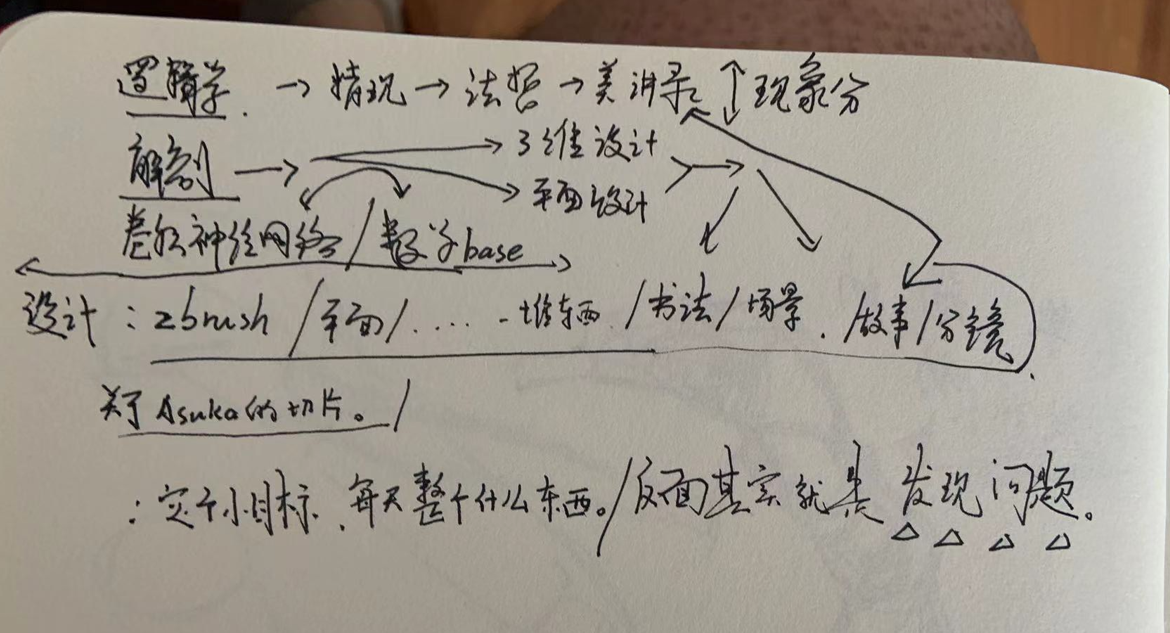 逻辑学. → 精现 → 法哲 → 美讲录 ↕ 现象分
解剖 → 3维设计
平面设计
卷积神经网络 / 数学base
设计：zbrush / 平面 / ..... - 堆东西 / 书法 / 场景. / 故事 / 分镜.
关于Asuka的切片。/
：定个小目标、每天整个什么东西。/ 反面其实就是 发现问题。